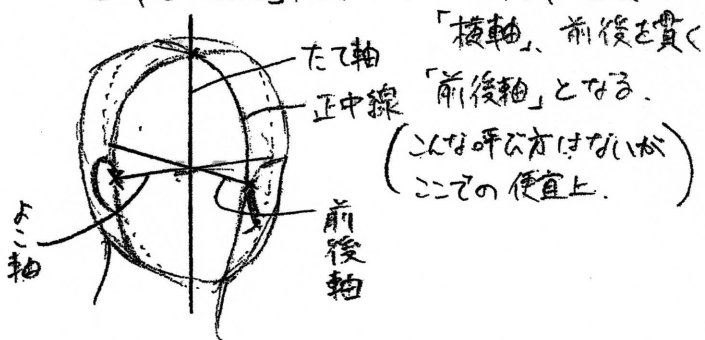 「横軸」、前後を貫く
「前後軸」となる.
(こんな呼び方はないが
ここでの便宜上.)
たて軸
正中線
よこ軸
前後軸